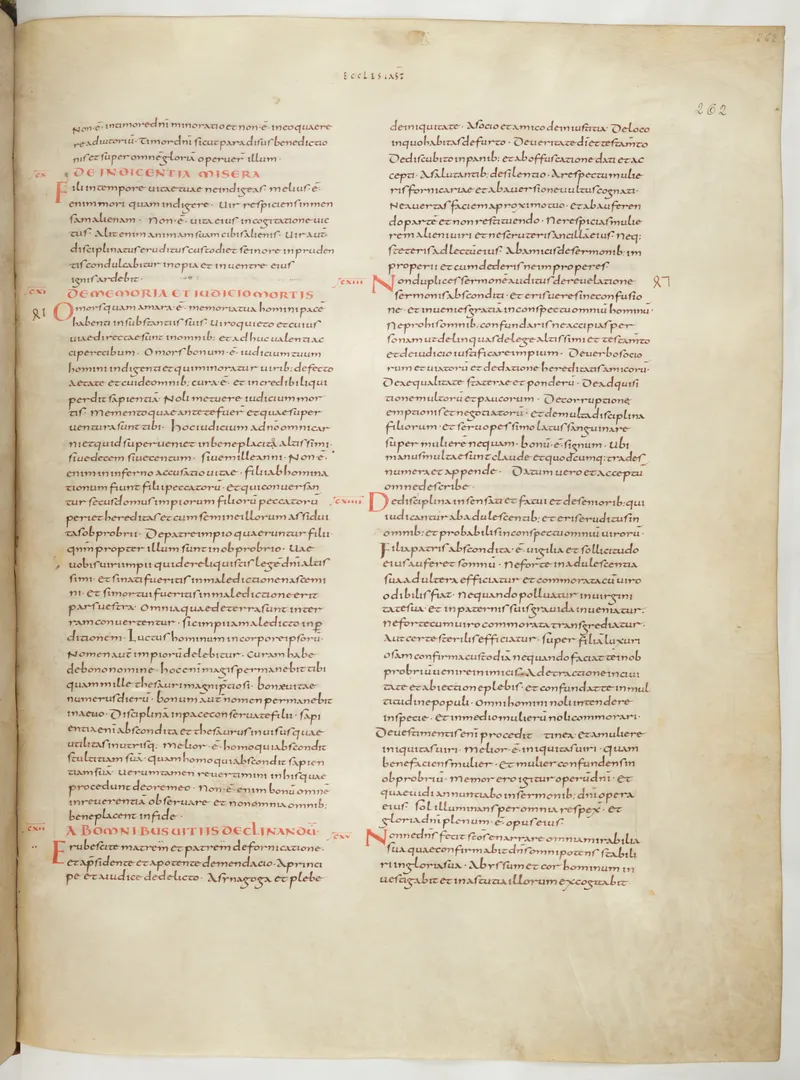 ECCLESIAST
262
Non · ē · in timore dnī minoratio et non · ē · in eo quaere
re adiutoriū · Timor dnī sicut paradisus benedictio
nis et super omnē gloriā operuer̄ illum ·
cx DE INDIGENTIA MISERA
Fili in tempore uitae tuae ne indigeas melius · ē ·
enim mori quam indigere · Uir respiciens in men
sam alienam · Non · ē · uita eius in cogitatione uic
tus · Alit enim animam suam cibis alienis · Uir aut̄
disciplinatus et eruditus custodiet se in ore inpruden
tis condulcabitur inopia et in uentre eius
ignis ardebit ·
cxi DE MEMORIA ET IUDICIO MORTIS
O mors quam amara · ē · memoria tua homini pacē
habenti in substantiis suis · Uiro quieto et cuius
uiae directae sunt in omnib; et adhuc ualenti ac
cipere cibum · O mors bonum · ē · iudicium tuum
homini indigenti et qui minoratur uirib; defecto
aetate et cui de omnib; cura · ē · et incredibili qui
perdit sapientiā · Noli metuere iudicium mor
tis · Memento quae ante te fuer̄ et quae super
uentura sunt tibi · Hoc iudicium a dnō omni car
ni et quid superueniet in beneplacitā altissimi ·
siue decem siue centum · siue mille anni · Non · ē ·
enim in inferno accusatio uitae · filii abhomina
tionum fiunt filii peccatorū · et qui conuersan
tur secus domus impiorum filiorū peccatorū
periet hereditas et cum semine illorum assidui
tas obprobrii · De patre impio quaeruntur filii
qnm̄ propter illum sunt in obprobrio · Uae
uobis uiri impii qui dereliquistis legē dnī altis
simi · et si nati fueritis in maledictione nascemi
ni · et si mortui fueritis in maledictione erit
pars uestra · Omnia quae de terra sunt in ter
ram conuertentur · sic impii a maledicto in p
ditionem · Luctus hominum in corpore ipsorū ·
Nomen aut̄ impiorū delebitur · Curam habe
de bono nomine · hoc enī magis permanebit tibi
quam mille thesauri magni p̄tiosi · bonae uitae
numerus dierū · bonum aut̄ nomen permanebit
in aeuo · Disciplinā in pace conseruate filii · sapi
entia enī abscondita et thesaurus inuisus quae
utilitas in utrisq; · Melior · ē · homo qui abscondit
stultitiam suā · quam homo qui abscondit sapien
tiam suā · Uerumtamen reuertimini in his quae
procedunt de ore meo · Non · ē · enim bonū omnē
inreuerentiā obseruare · et non omnia omnib;
bene placent in fide ·
cxii AB OMNIBUS UITIIS DECLINANDŪ ·
Erubescite matrem et patrem de fornicatione ·
et a p̄sidente et a potente de mendacio · A princi
pe et a iudice de delicto · A synagoga et plebe
de iniquitate · A socio et amico de iniustitia · De loco
in quo habitas de furto · De ueritate dī et testam̄to
De discubito in panib; et ab offuscatione dati et ac
cepti · A salutantib; de silentio · A respectu mulie
ris fornicariae et ab auersione uultus cognati ·
Ne auertas faciem a proximo tuo · et ab auferen
do parte et non restituendo · Ne respicias mulie
rem alieni uiri et ne scruteris ancillā eius neq;
steteris ad lectū eius · Ab amicis de sermonib; im
properii et cum dederis ne improperes
cxiii Non duplices sermonē auditus de reuelatione
sermonis absconditi · et eris uere sine confusio
ne · et inuenies gratiā in conspectu omniū hominū ·
Ne pro his omnib; confundaris ne accipias per
sonam ut delinquas de lege altissimi et testam̄to
et de iudicio iustificare impium · De uerbo socio
rum et uiatorū et de datione hereditatis amicorū ·
De aequalitate staterae et ponderū · De adquisi
tione multorū et paucorum · De corruptione
emptionis et negotiatorū · et de multa disciplina
filiorum · et seruo pessimo latus sanguinare
super mulierē nequam · bonū · ē · signum · Ubi
manus multae sunt claude et quodcumq; trades
numera et appende · Datum uero et acceptū
omne describe ·
cxiiii De disciplina insensati et fatui et de seniorib; qui
iudicantur ab adulescentib; et eris eruditus in
omnib; et probabilis in conspectu omniū uirorū ·
Filia patris abscondita · ē · uigilia et sollicitudo
eius aufert somnū · Ne forte in adulescentia
sua adultera efficiatur et commorata cū uiro
odibilis fiat · Ne quando polluatur in uirgini
tate sua · et in paternis suis grauida inueniatur ·
ne forte cum uiro commorata transgrediatur ·
Aut certe sterilis efficiatur · super filiā luxuri
osam confirma custodiā ne quando faciat te in ob
probriū uenire inimicis · A detractione in ciui
tate et abiectione plebis · et confundat te in mul
titudine populi · Omni homini noli intendere
in specie · et in medio mulierū noli commorari ·
De uestimentis enī procedit tinea et a muliere
iniquitas uiri · Melior · ē · iniquitas uiri · quam
benefaciens mulier · et mulier confundens in
obprobriū · Memor ero igitur operū dnī · et
quae uidi annuntiabo in sermonib; dnī opera
eius · sol illuminans per omnia respex̄ · et
gloria dnī plenum · ē · opus eius ·
cxv Nonne dn̄s fecit scōs enarrare omnia mirabilia
sua quae confirmabit dn̄s omnipotens stabili
ri in gloria sua · Abyssum et cor hominum in
uestigabit et in astutia illorum excogitabit ·